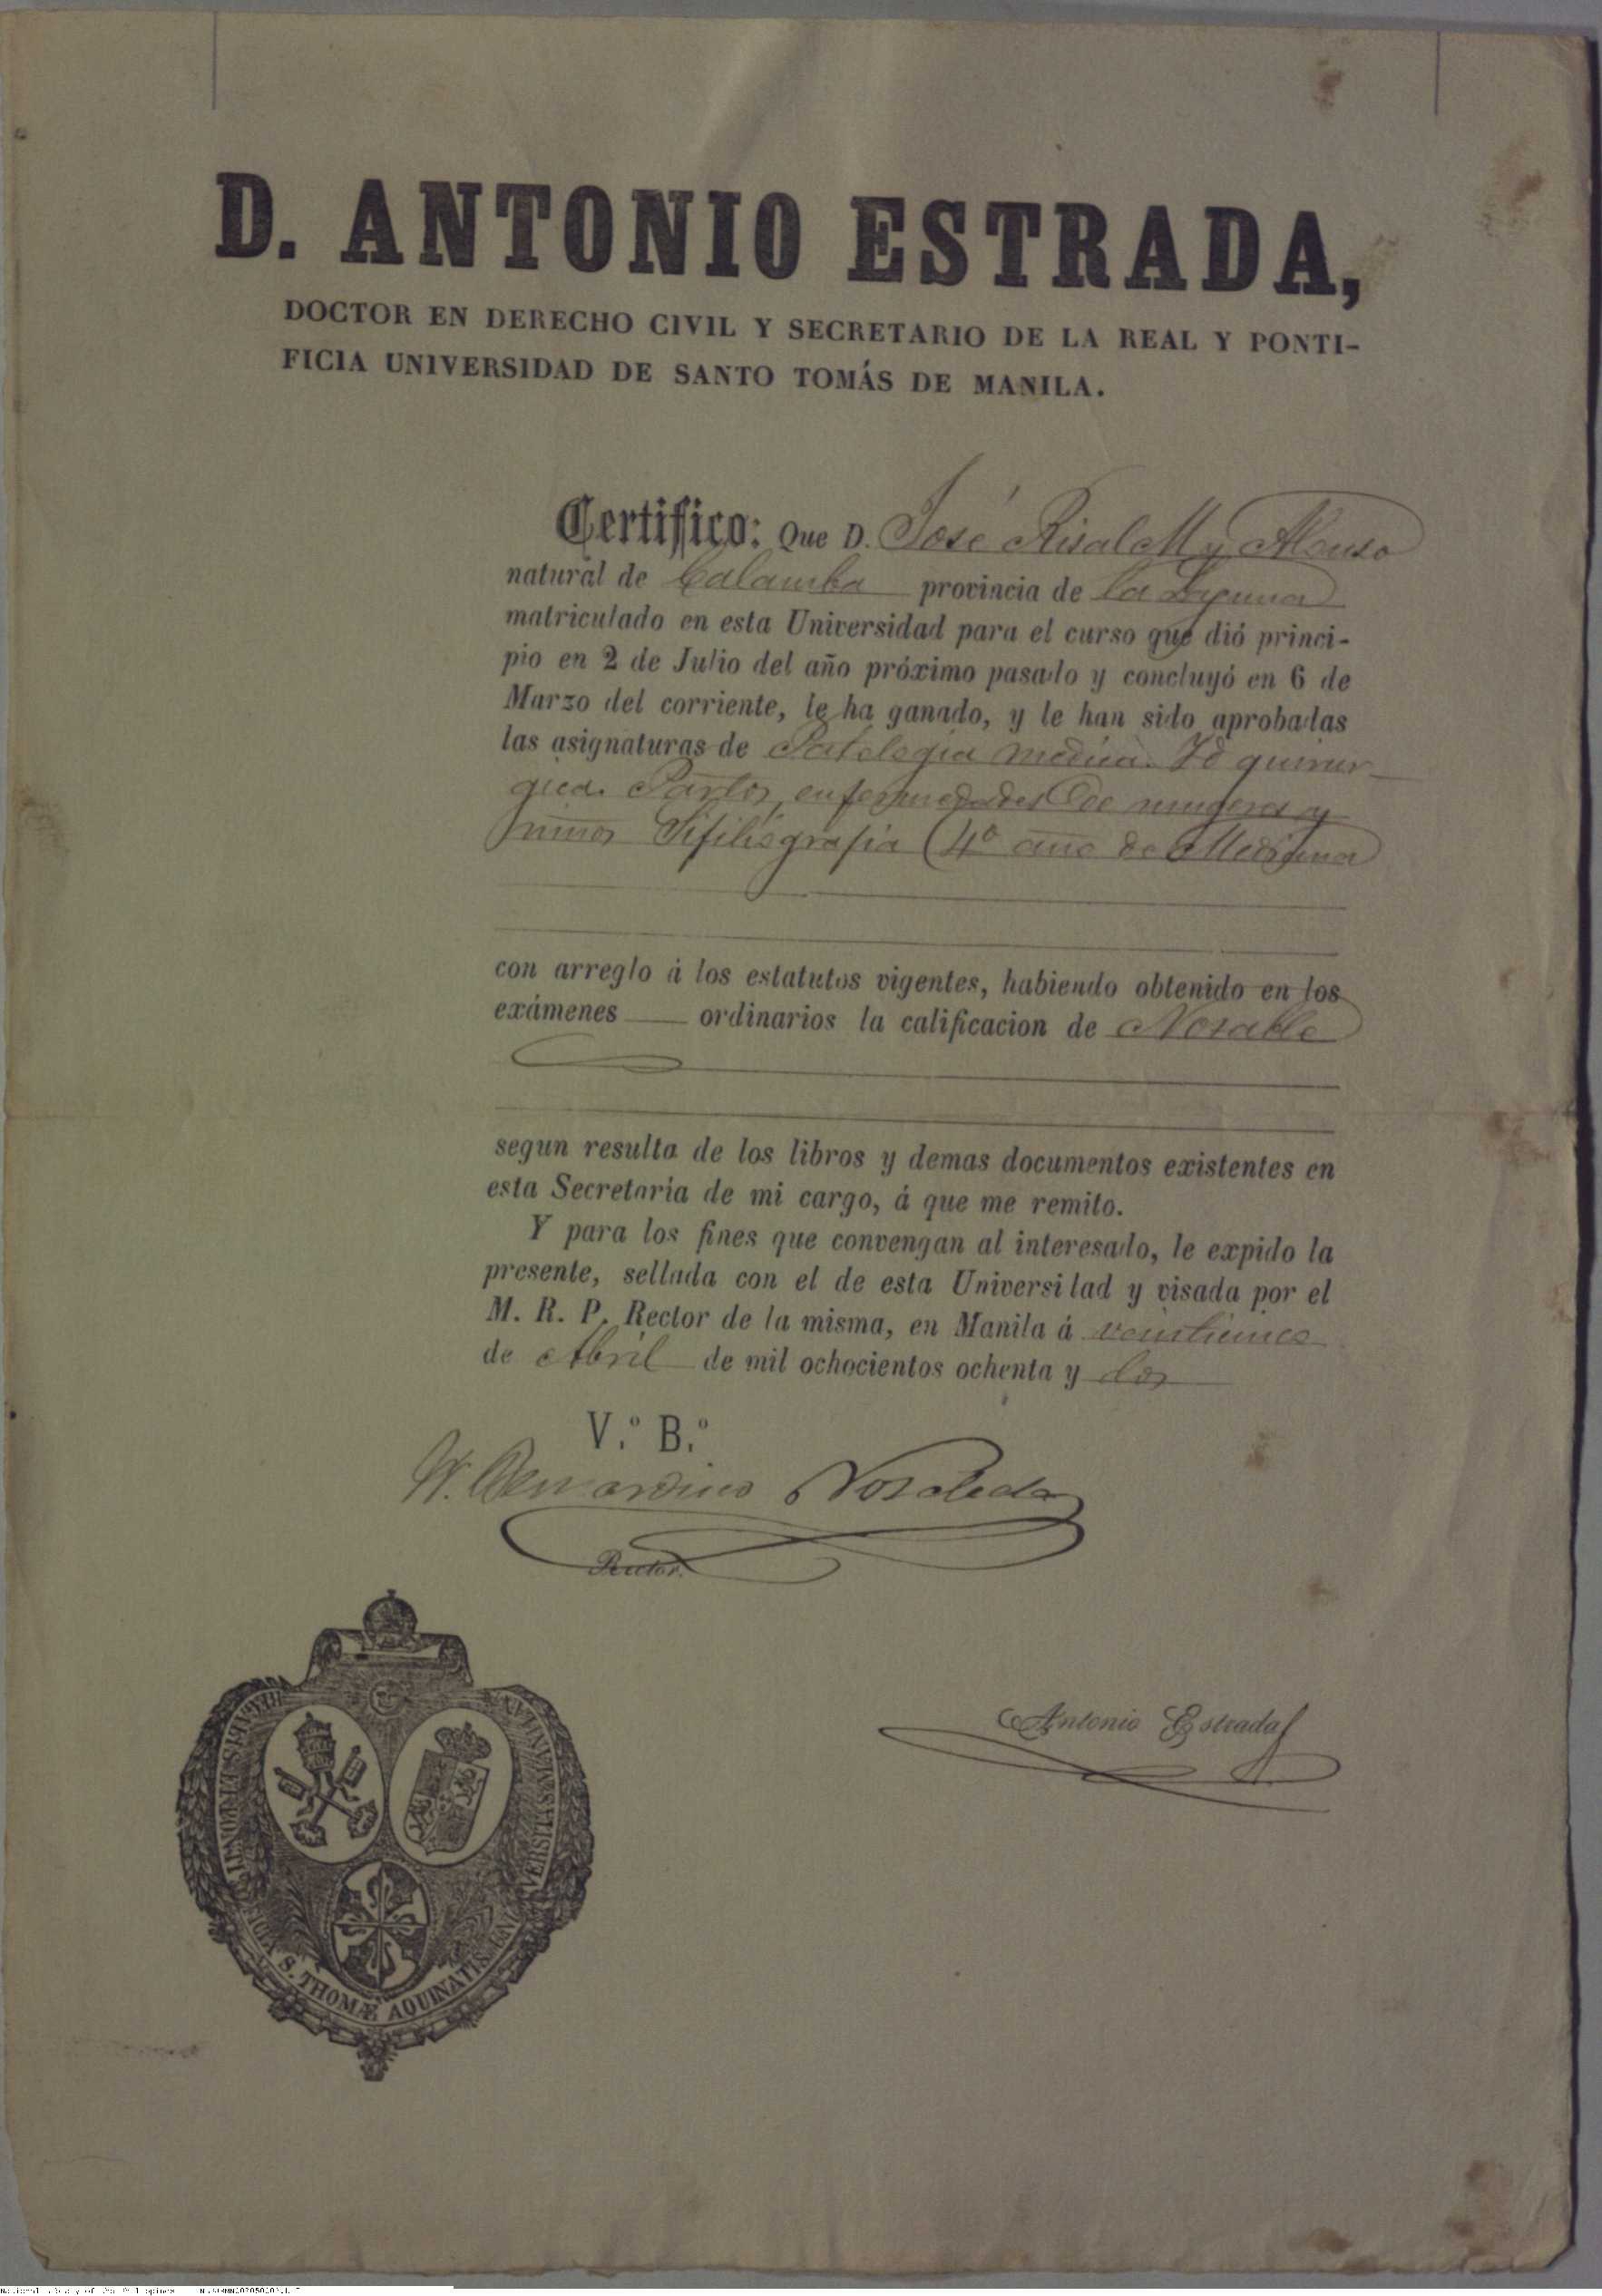 D. ANTONIO ESTRADA,
DOCTOR EN DERECHO CIVIL Y SECRETARIO DE LA REAL Y PONTI-
FICIA UNIVERSIDAD DE SANTO TOMÁS DE MANILA.
Certifico: Que D. José Risal M y Alonso
natural de Calamba provincia de la Laguna
matriculado en esta Universidad para el curso que dió princi-
pio en 2 de Julio del año próximo pasado y concluyó en 6 de
Marzo del corriente, le ha ganado, y le han sido aprobadas
las asignaturas de Patologia medica. Id quirur-
gica. Partos, enfermedades de mugeres y
niños Sifiliografia (4º año de Medicina)
con arreglo á los estatutos vigentes, habiendo obtenido en los
exámenes ordinarios la calificacion de Notable
segun resulta de los libros y demas documentos existentes en
esta Secretaría de mi cargo, á que me remito.
Y para los fines que convengan al interesado, le expido la
presente, sellada con el de esta Universidad y visada por el
M. R. P. Rector de la misma, en Manila á veinticinco
de Abril de mil ochocientos ochenta y dos
V.º B.º
Bernardino Nozaleda
Rector.
Antonio Estrada
S. THOMÆ AQUINATIS
National Library of the Philippines